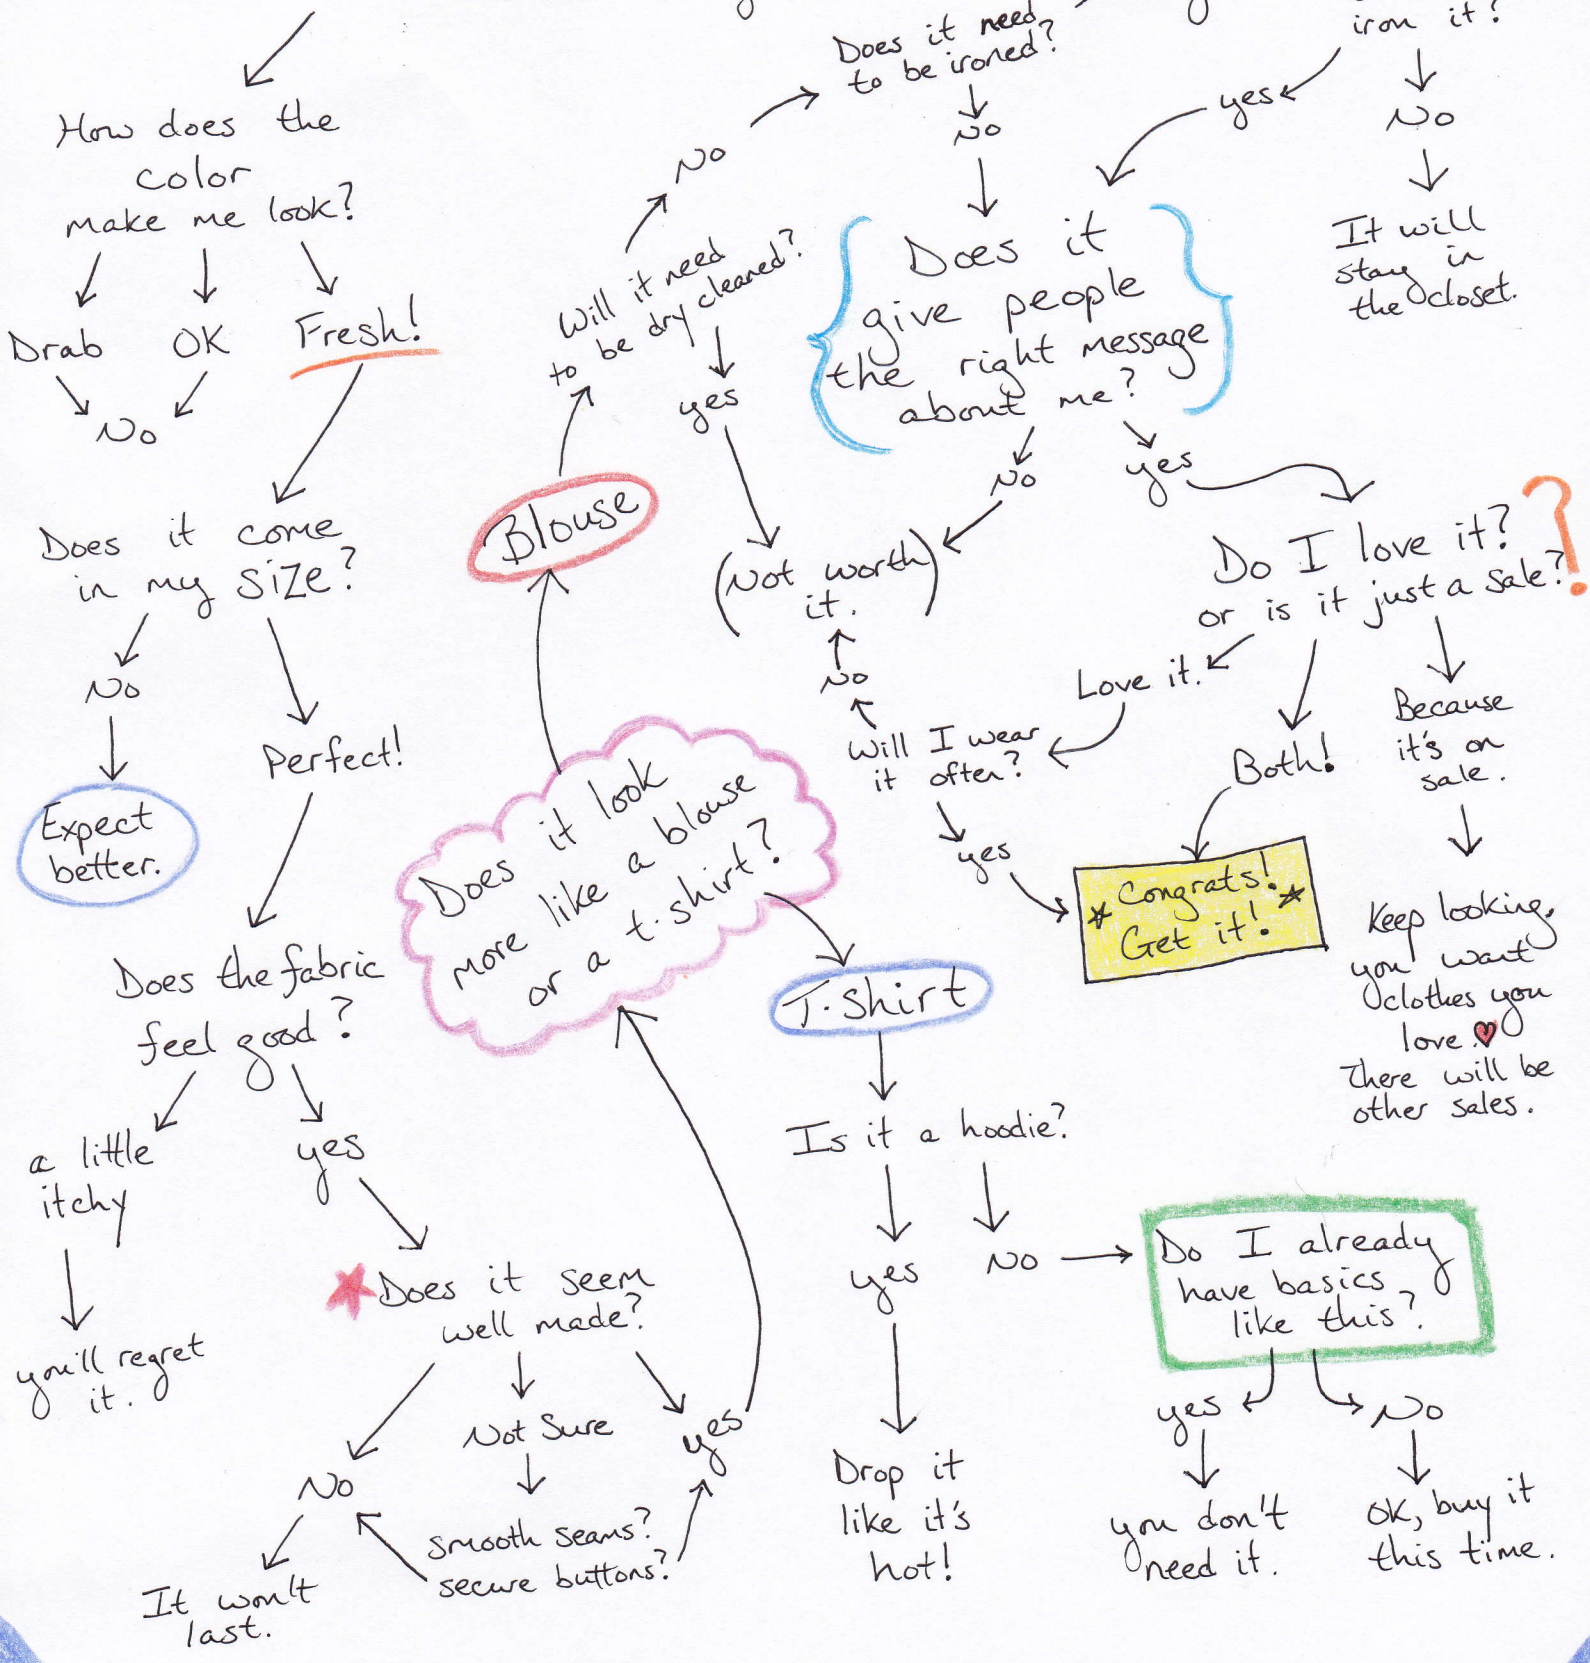 How does the
color
make me look?
Drab
OK
Fresh!
No
Does it come
in my size?
No
Perfect!
Expect
better.
Does the fabric
feel good?
a little
itchy
yes
you'll regret
it.
Does it seem
well made?
No
Not Sure
yes
smooth seams?
secure buttons?
It won't
last.
Does it look
more like a blouse
or a t-shirt?
Blouse
Will it need
to be dry cleaned?
No
yes
Does it need
to be ironed?
No
iron it?
yes
No
It will
stay in
the closet.
Does it
give people
the right message
about me?
No
yes
(Not worth
it.)
Do I love it?
or is it just a sale?
?
Love it.
Both!
Because
it's on
sale.
Will I wear
it often?
No
yes
Congrats!
Get it!
Keep looking,
you want
clothes you
love.
There will be
other sales.
T-Shirt
Is it a hoodie?
yes
No
Drop it
like it's
hot!
Do I already
have basics
like this?
yes
No
you don't
need it.
OK, buy it
this time.